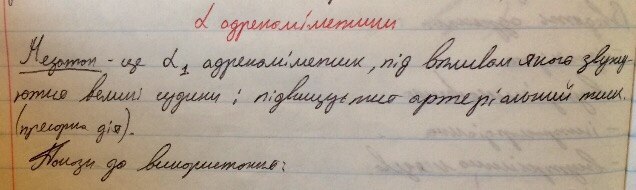 α адреноміметики
Мезатон - це α1 адреноміметик, під впливом якого звужу-
ються великі судини і підвищується артеріальний тиск.
(пресорна дія).
Покази до використання: